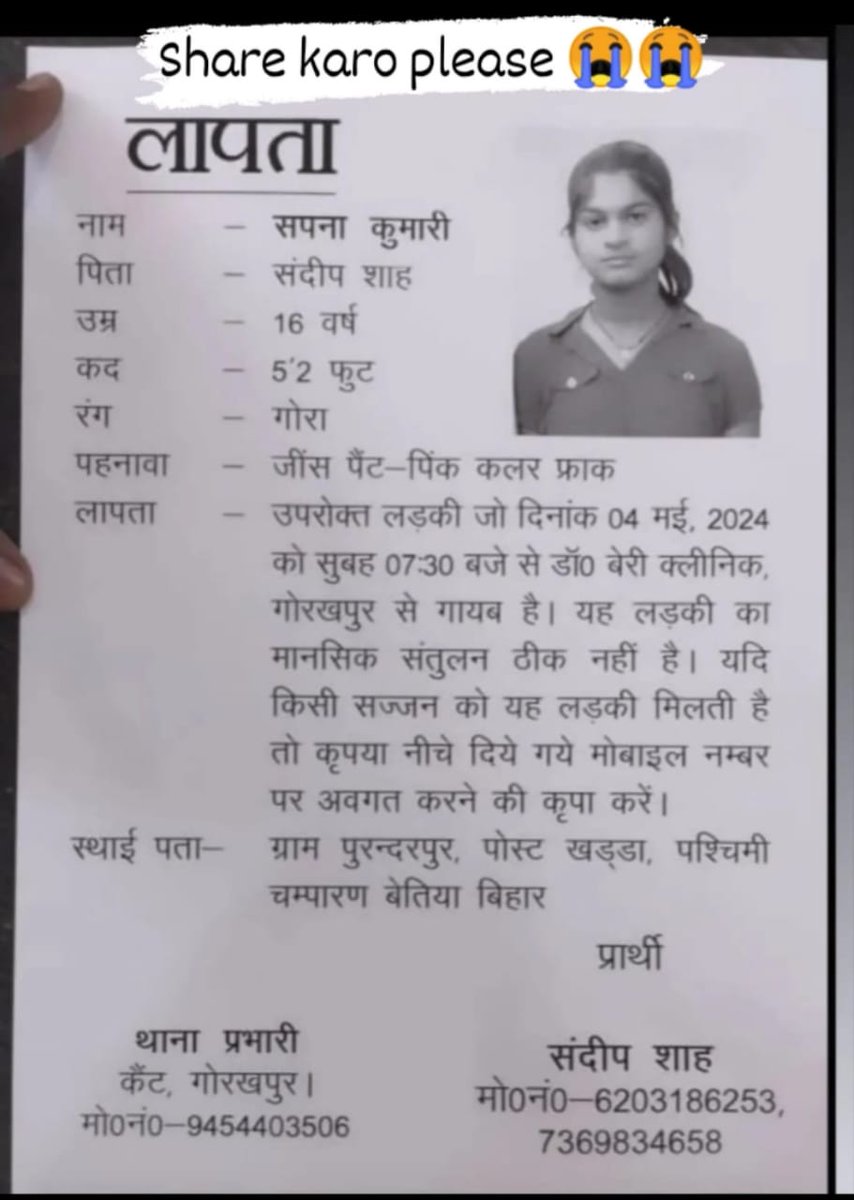 Share karo please 😭😭
लापता
नाम – सपना कुमारी
पिता – संदीप शाह
उम्र – 16 वर्ष
कद – 5'2 फुट
रंग – गोरा
पहनावा – जींस पैंट–पिंक कलर फ्राक
लापता – उपरोक्त लड़की जो दिनांक 04 मई, 2024
को सुबह 07:30 बजे से डॉ0 बेरी क्लीनिक,
गोरखपुर से गायब है। यह लड़की का
मानसिक संतुलन ठीक नहीं है। यदि
किसी सज्जन को यह लड़की मिलती है
तो कृपया नीचे दिये गये मोबाइल नम्बर
पर अवगत करने की कृपा करें।
स्थाई पता– ग्राम पुरन्दरपुर, पोस्ट खड्डा, पश्चिमी
चम्पारण बेतिया बिहार
प्रार्थी
थाना प्रभारी
कैंट, गोरखपुर।
मो0नं0–9454403506
संदीप शाह
मो0नं0–6203186253,
7369834658